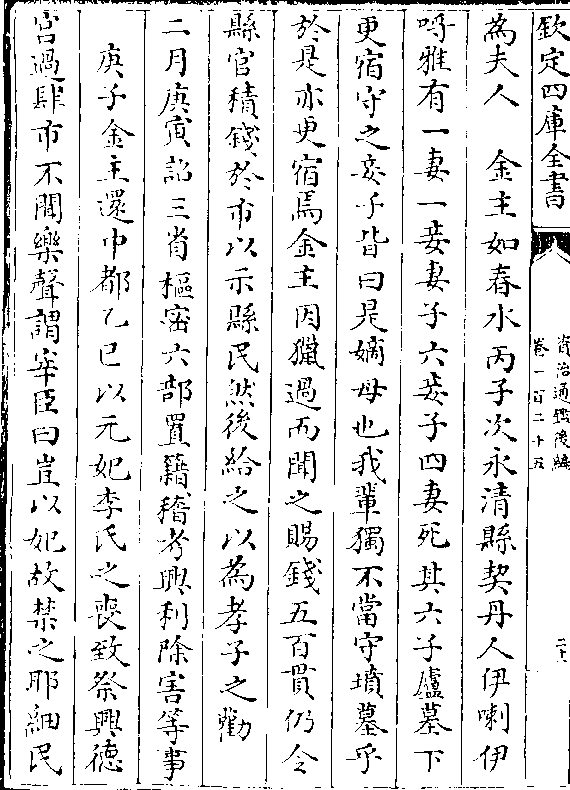 欽定四庫全書
資治通鑑後編
卷一百二十五
為夫人　金主如春水丙子次永清縣契丹人伊喇伊
呼雅有一妻一妾妻子六妾子四妻死其六子廬墓下
更宿守之妾子皆曰是嫡母也我輩獨不當守墳墓乎
於是亦更宿焉金主因獵過而聞之賜錢五百貫仍令
縣官積錢於市以示縣民然後給之以為孝子之勸
二月庚寅詔三省樞密六部置籍稽考興利除害等事
庚子金主還中都乙巳以元妃李氏之喪致祭興德
宮過肆市不聞樂聲謂宰臣曰豈以妃故禁之耶細民